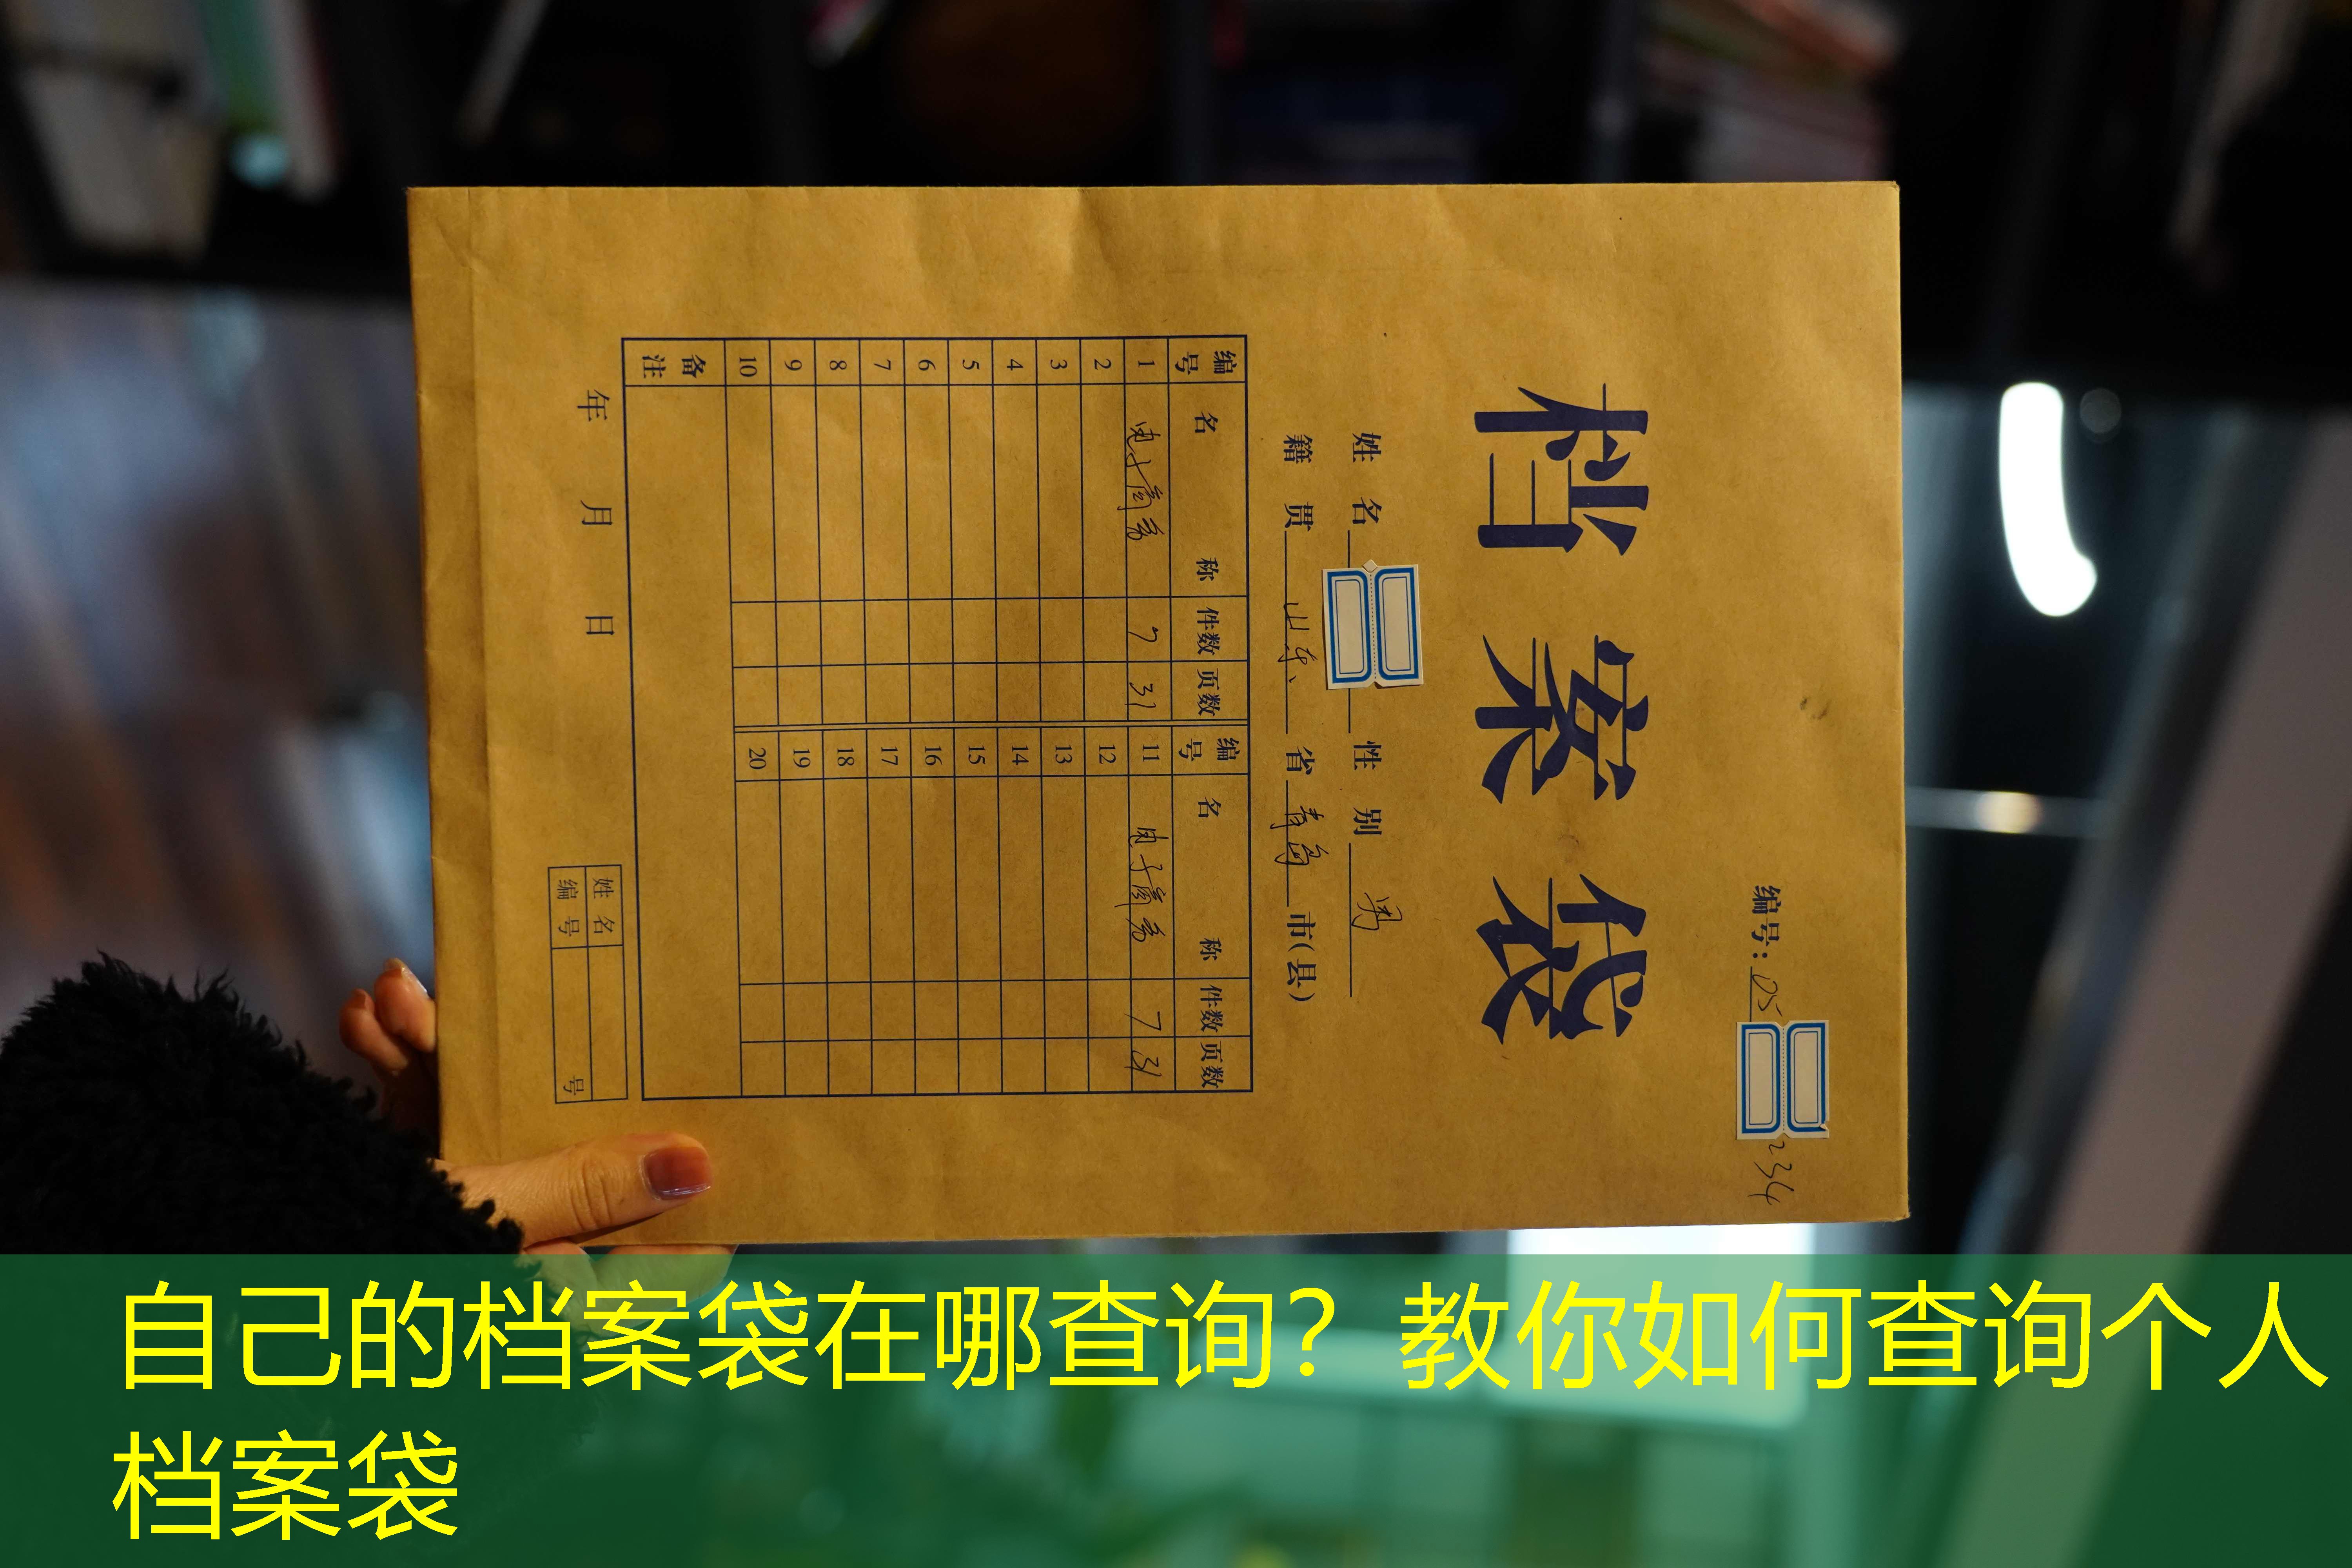 编号：05 234
档案袋
姓名 性别 男
籍贯 山东 省 青岛 市(县)
编号 名称 件数 页数 编号 名称 件数 页数
1 电子商务 7 31 11 电子商务 7 31
2 12
3 13
4 14
5 15
6 16
7 17
8 18
9 19
10 20
备注
年 月 日
姓名
编号 号
自己的档案袋在哪查询？教你如何查询个人
档案袋